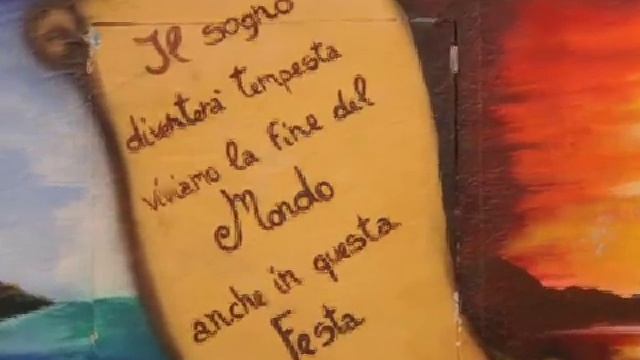 Il sogno
diventerà tempesta
viviamo la fine del
Mondo
anche in questa
Festa